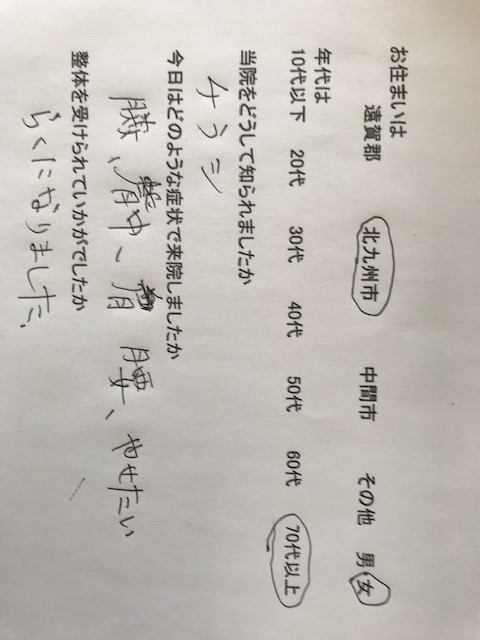 お住まいは
遠賀郡 北九州市 中間市 その他 男・女
年代は
10代以下 20代 30代 40代 50代 60代 70代以上
当院をどうして知られましたか
チラシ
今日はどのような症状で来院しましたか
膝、背中、肩 腰、やせたい
整体を受けられていかがでしたか
らくになりました。